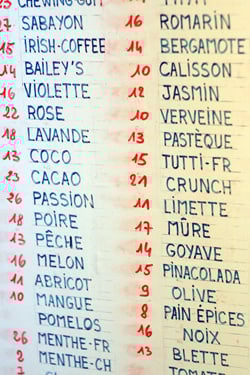 23 CHEWING-GUM
27 SABAYON
15 IRISH-COFFEE
14 BAILEY'S
16 VIOLETTE
22 ROSE
18 LAVANDE
13 COCO
23 CACAO
26 PASSION
18 POIRE
13 PÊCHE
16 MELON
11 ABRICOT
10 MANGUE
POMELOS
26 MENTHE-FR
2 MENTHE-CH
7
16 ROMARIN
14 BERGAMOTE
10 CALISSON
12 JASMIN
10 VERVEINE
13 PASTÈQUE
15 TUTTI-FR
21 CRUNCH
11 LIMETTE
17 MÛRE
14 GOYAVE
15 PINACOLADA
9 OLIVE
8 PAIN ÉPICES
16 NOIX
13 BLETTE
TOMATE